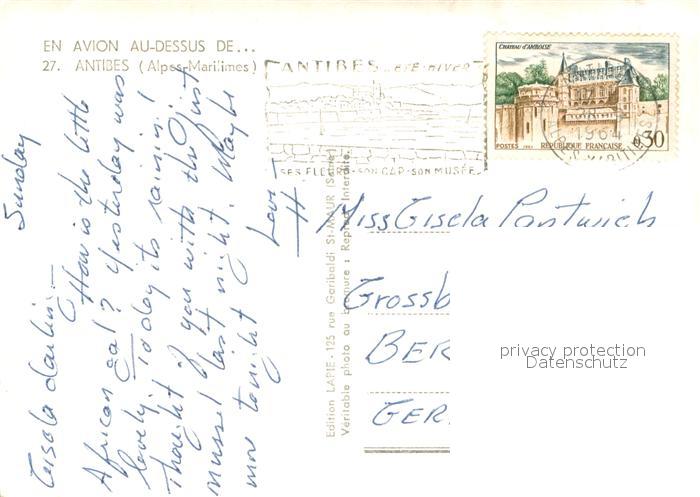 EN AVION AU-DESSUS DE...
27. ANTIBES (Alpes-Maritimes)
ANTIBES ÉTÉ-HIVER
SES FLEURS·SON CAP·SON MUSÉE
CHATEAU d'AMBOISE
1964
0,30
POSTES 1963 RÉPUBLIQUE FRANÇAISE
Sunday
Gisela darlin:-
How is the little
African gal? Yesterday was
lovely, today its raining!
Thought of you with the first
mussel last night. Maybe
more tonight
Love
H
Edition LAPIE - 125 rue Garibaldi St-MAUR (Seine)
Véritable photo au bromure : Reprod. Interdite.
Miss Gisela Pantwich
Grossb
BER
GER
privacy protection
Datenschutz